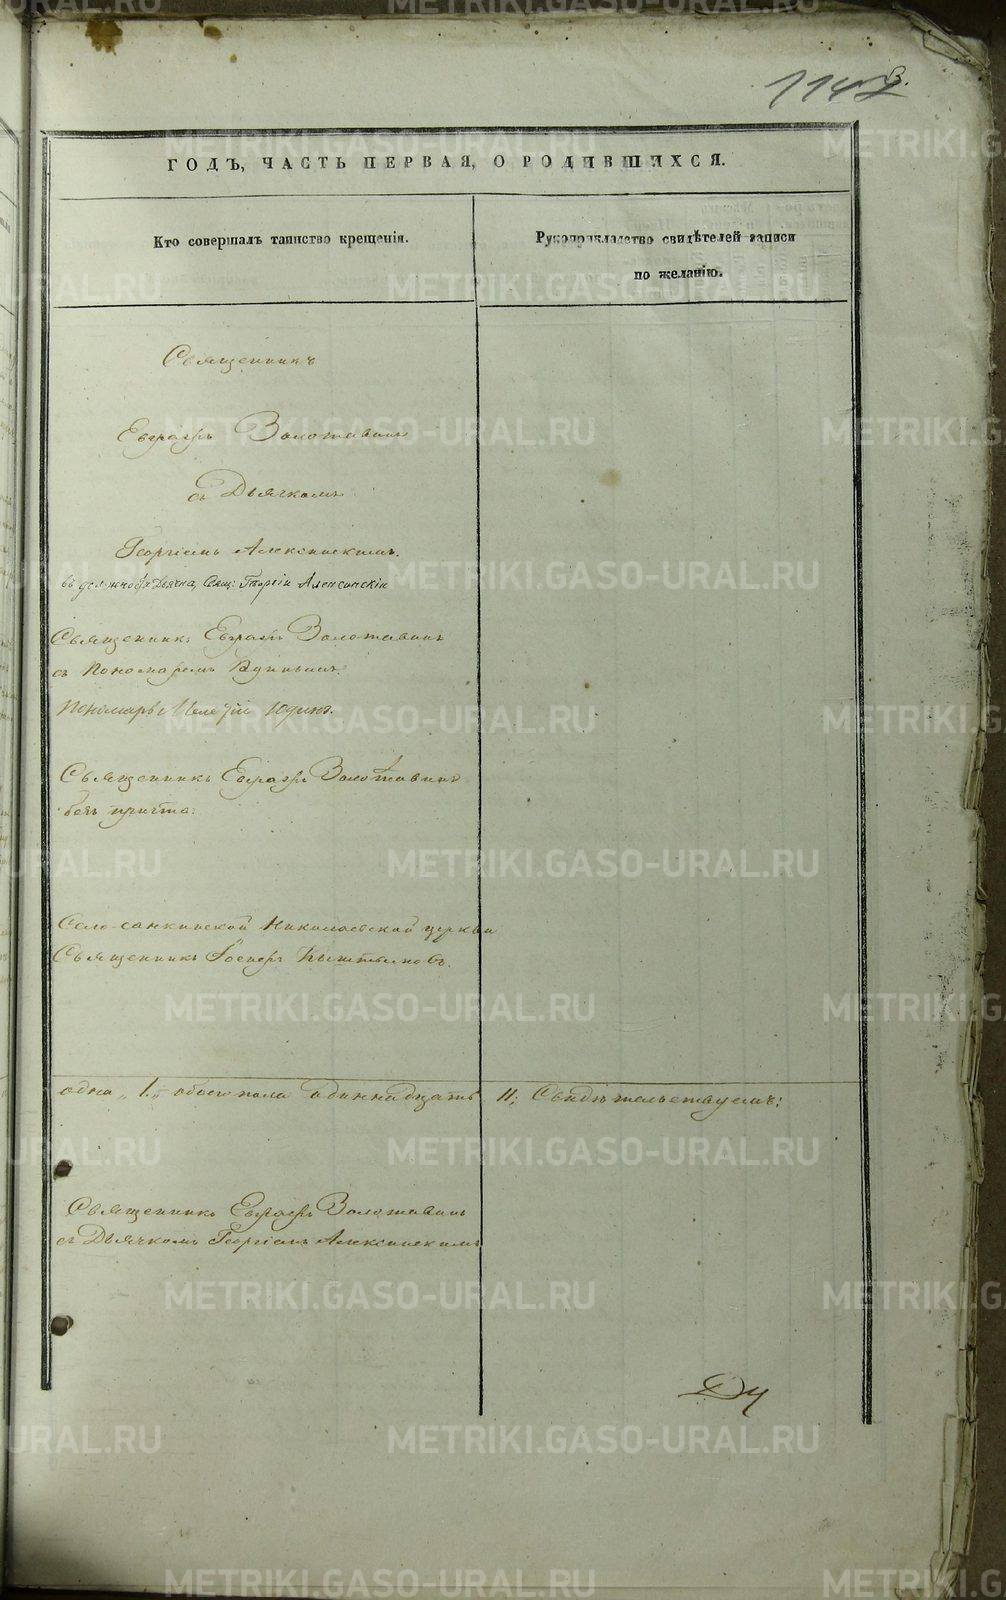 1147
3.
ГОДЪ, ЧАСТЬ ПЕРВАЯ, О РОДИВШИХСЯ.
Кто совершалъ таинство крещенія.
Рукоприкладство свидѣтелей записи
по желанію.
Священникъ
Евграфъ Золотавинъ
съ Дьячкомъ
Георгіемъ Алексинскимъ.
въ должности Дьячка, Свящ: Георгій Алексинскій
Священникъ Евграфъ Золотавинъ
съ Пономаремъ Юдинымъ.
Пономарь Юдинъ.
Священникъ Евграфъ Золотавинъ
безъ причта.
Село-санкинской Николаевской церкви
Священникъ Іосифъ Кыштымовъ.
одна „1„ обоего пола одиннадцать 11; Свидѣтельствуемъ:
Священникъ Евграфъ Золотавинъ
съ Дьячкомъ Георгіемъ Алексинскимъ
METRIKI.GASO-URAL.RU